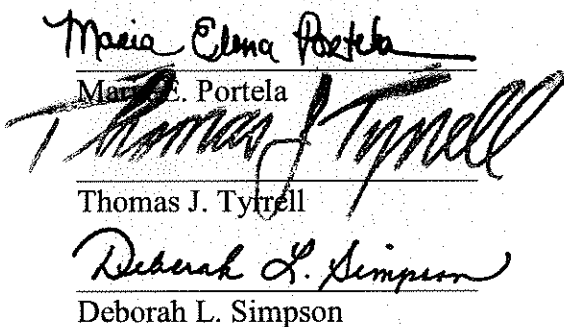 Maria Elena Portela
Maria E. Portela
Thomas J Tyrrell
Thomas J. Tyrrell
Deborah L. Simpson
Deborah L. Simpson